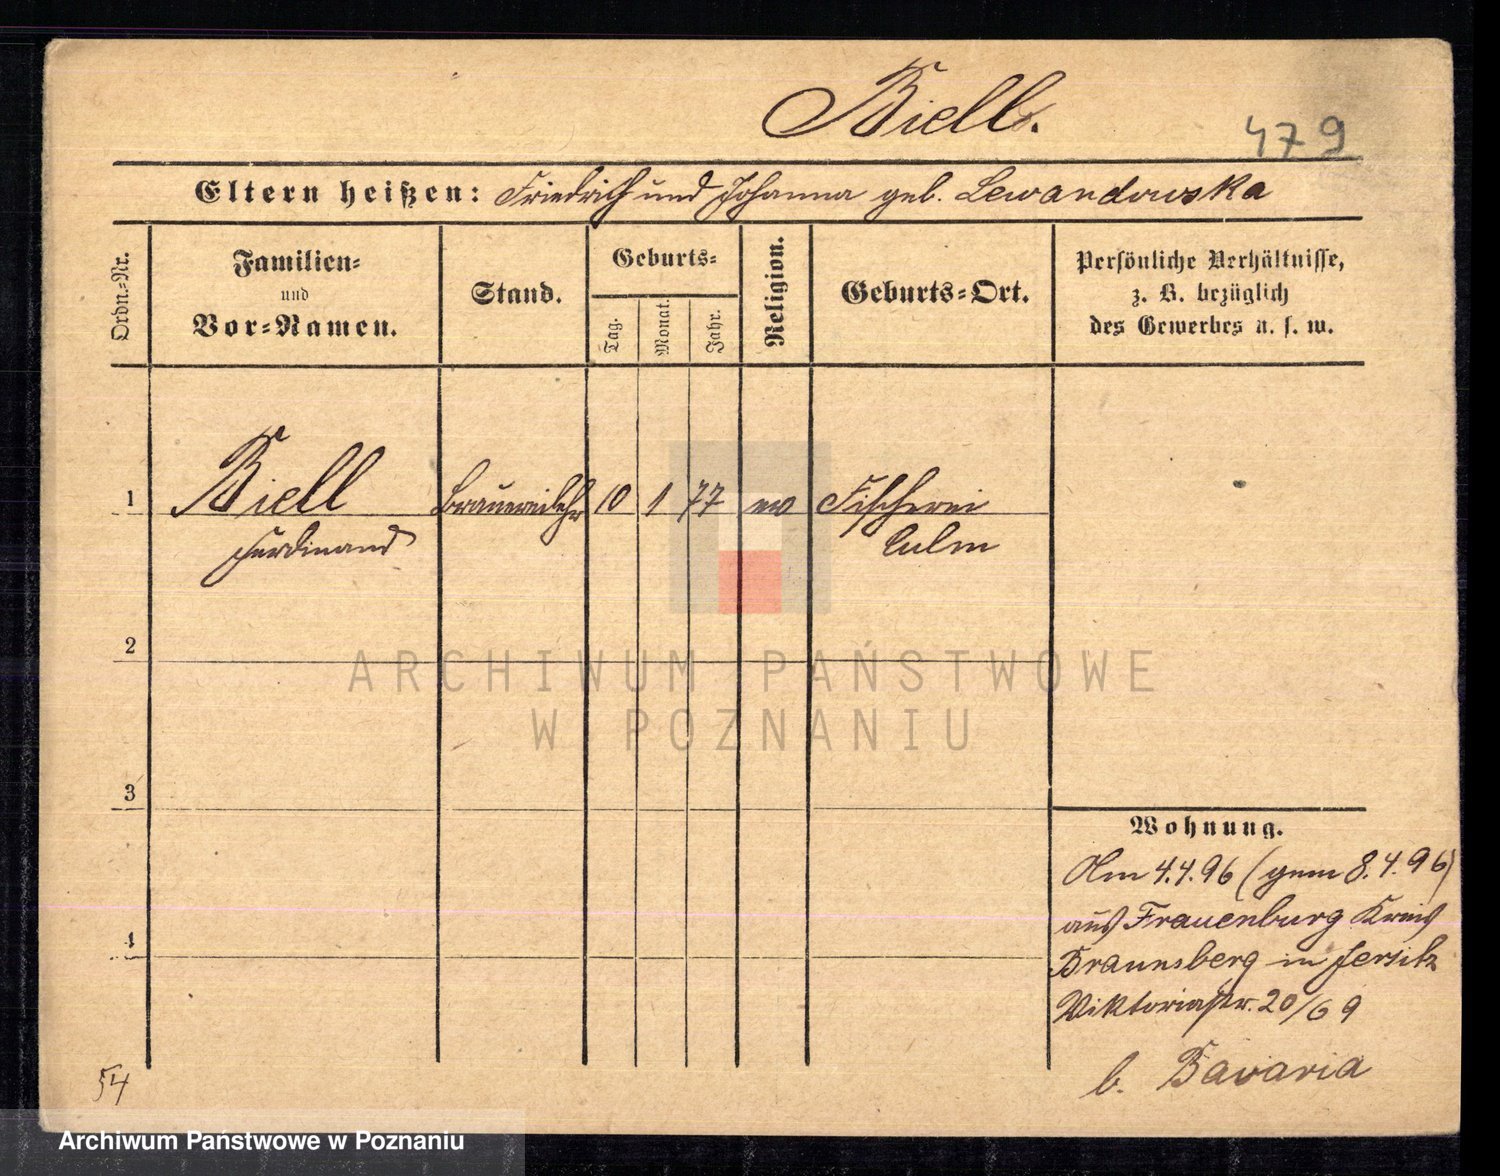 Biell.
479
Eltern heißen: Friedrich und Johanna geb. Lewandowska
Ordn.=Nr.
Familien=
und
Vor=Namen.
Stand.
Geburts=
Tag.
Monat.
Jahr.
Religion.
Geburts=Ort.
Persönliche Verhältnisse,
z. B. bezüglich
des Gewerbes u. s. w.
1
Biell
Ferdinand
Brauereilehr
10
1
77
ev
Fischerei
Culm
2
ARCHIWUM PAŃSTWOWE
W POZNANIU
3
4
Wohnung.
4.4.96 (gem 8.4.96)
aus Frauenburg Kreis
Braunsberg in Jersitz
Viktoriastr. 20/69
b. Bavaria
54
Archiwum Państwowe w Poznaniu